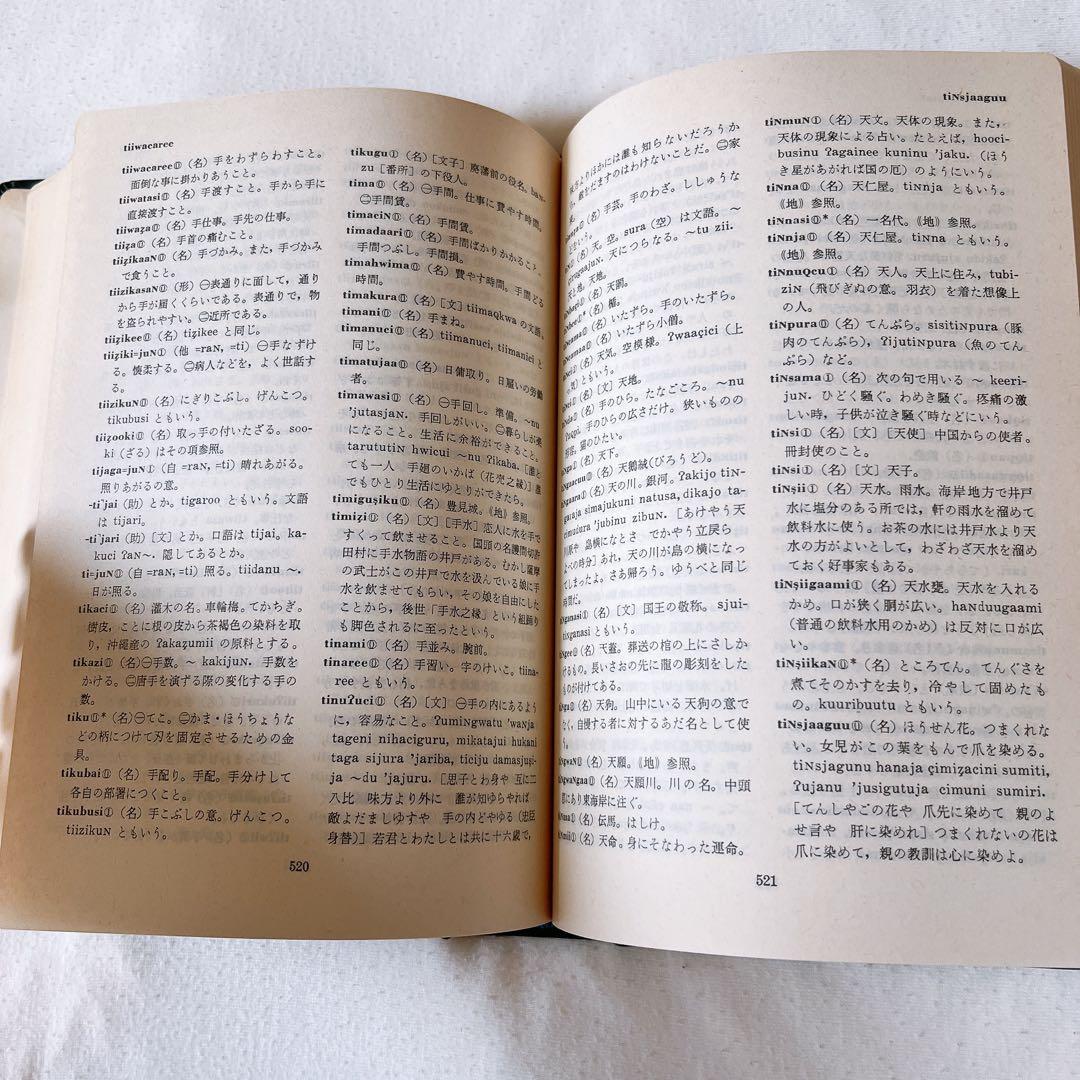 tiiwacaree
tiiwacaree⓪（名）手をわずらわすこと。
面倒な事に掛かりあうこと。
tiiwatasi⓪（名）手渡すこと。手から手に
直接渡すこと。
tiiwaza⓪（名）手仕事。手先の仕事。
tiiza⓪（名）手首の痛むこと。
tiizikaaN⓪（名）手づかみ。また，手づかみ
で食うこと。
tiizikasaN⓪（形）㊀表通りに面して，通り
から手が届くくらいである。表通りで，物
を盗られやすい。㊁近所である。
tiizikee⓪（名）tizikee と同じ。
tiiziki=juN①（他 =raN, =ti）㊀手なずけ
る。懐柔する。㊁病人などを，よく世話す
る。
tiizikuN⓪（名）にぎりこぶし。げんこつ。
tikubusi ともいう。
tiizooki⓪（名）取っ手の付いたざる。soo-
ki（ざる）はその項参照。
tijaga=juN①（自 =raN, =ti）晴れあがる。
照りあがるの意。
-ti'jai（助）とか。tigaroo ともいう。文語
は tijari.
-ti'jari（助）［文］とか。口語は tijai. ka-
kuci ʔaN～. 隠してあるとか。
ti=juN⓪（自 =raN, =ti）照る。tiidanu ～.
日が照る。
tikaci⓪（名）灌木の名。車輪梅。てかちぎ。
樹皮，ことに根の皮から茶褐色の染料を取
り，沖縄産の ʔakazumii の原料とする。
tikazi⓪（名）㊀手数。～ kakijuN. 手数を
かける。㊁唐手を演ずる際の変化する手の
数。
tiku⓪*（名）㊀てこ。㊁かま・ほうちょうな
どの柄につけて刃を固定させるための金
具。
tikubai⓪（名）手配り。手配。手分けして
各自の部署につくこと。
tikubusi①（名）手こぶしの意。げんこつ。
tiizikuN ともいう。
tikugu①（名）［文子］廃藩前の役名。baN-
zu［番所］の下役人。
tima⓪（名）㊀手間。仕事に費やす時間。
㊁手間賃。
timaciN⓪（名）手間賃。
timadaari⓪（名）手間ばかりかかること。
手間つぶし。手間損。
timahwima⓪（名）費やす時間。手間どる
時間。
timakura⓪（名）［文］tiimaQkwa の文語。
timani⓪（名）手まね。
timanuci⓪（名）tiimanuci, tiimanici と
同じ。
timatujaa⓪（名）日傭取り。日雇いの労働
者。
timawasi⓪（名）㊀手回し。準備。～nu
'jutasjaN. 手回しがいい。㊁暮らしが楽
になること。生活に余裕ができること。
tarututiN hwicui ～nu ʔikaba.［誰と
ても一人 手廻のいかば（花売之縁）］誰
でもひとり生活にゆとりができたら。
timigusiku⓪（名）豊見城。《地》参照。
timizi⓪（名）［文］［手水］恋人に水を手で
すくって飲ませること。国頭の名護間切許
田村に手水物語の井戸がある。むかし薩摩
の武士がこの井戸で水を汲んでいる娘に手
水を飲ませてもらい，その娘を自由にした
ことから，後世「手水之縁」という組踊り
も脚色されるに至ったという。
tinami⓪（名）手並み。腕前。
tinaree⓪（名）手習い。字のけいこ。tiina-
ree ともいう。
tinuʔuci⓪（名）［文］㊀手の内にあるよう
に，容易なこと。ʔumiNgwatu 'waNja
tageni nihaciguru, mikatajui hukani
taga sijura 'jariba, ticiju damasjusi-
ja ～du 'jajuru.［思子とわ身や 互に二
八比 味方より外に 誰が知ゆらやれば
敵よだましゆすや 手の内どやゆる（忠臣
身替）］若君とわたしとは共に十六歳で，
520
tiNsjaaguu
味方よりほかには誰も知らないだろうか
ら，敵をだますのはわけないことだ。㊁家
（名）手芸。手のわざ。ししゅうな
（名）天。空。sura（空）は文語。～tu zii.
天につらなる。
天地。
（名）天罰。
（名）楯。
（名）いたずら。手のいたずら。
（名）いたずら小僧。
（名）天気。空模様。ʔwaacici（上
ともいう。
（名）［文］天地。
（名）手のひら。たなごころ。～nu
手のひらの広さだけ。狭いものの
形容。猫のひたい。
（名）天下。
（名）天鵞絨（びろうど）。
（名）天の川。銀河。ʔakijo tiN-
gaaraja simajukuni natusa, dikajo ta-
cimudura 'jubinu zibuN.［あけやう天
川原や 島横になとさ でかやう立戻ら
よべの時分］あれ，天の川が島の横になっ
てしまったよ。さあ帰ろう。ゆうべと同じ
時間だ。
tiNganasi①（名）［文］国王の敬称。sjui-
tiNganasi ともいう。
（名）天蓋。葬送の棺の上にさしか
けるもの。長いさおの先に龍の彫刻をした
ものが付けてある。
（名）天狗。山中にいる天狗の意で
なく，自慢する者に対するあだ名として使
う。
（名）天願。《地》参照。
（名）天願川。川の名。中頭
郡にあり東海岸に注ぐ。
（名）伝馬。はしけ。
（名）天命。身にそなわった運命。
tiNmuN①（名）天文。天体の現象。また，
天体の現象による占い。たとえば，hooci-
businu ʔagainee kuninu 'jaku.（ほう
き星があがれば国の厄）のようにいう。
tiNna⓪（名）天仁屋。tiNnja ともいう。
《地》参照。
tiNnasi⓪*（名）一名代。《地》参照。
tiNnja⓪（名）天仁屋。tiNna ともいう。
《地》参照。
tiNnuQcu⓪（名）天人。天上に住み，tubi-
ziN（飛びぎぬの意。羽衣）を着た想像上
の人。
tiNpura⓪（名）てんぷら。sisitiNpura（豚
肉のてんぷら），ʔijutiNpura（魚のてん
ぷら）など。
tiNsama①（名）次の句で用いる ～ keeri-
juN. ひどく騒ぐ。わめき騒ぐ。疼痛の激
しい時，子供が泣き騒ぐ時などにいう。
tiNsi①（名）［文］［天使］中国からの使者。
冊封使のこと。
tiNsi①（名）［文］天子。
tiNsii①（名）天水。雨水。海岸地方で井戸
水に塩分のある所では，軒の雨水を溜めて
飲料水に使う。お茶の水には井戸水より天
水の方がよいとして，わざわざ天水を溜め
ておく好事家もある。
tiNsiigaami①（名）天水甕。天水を入れる
かめ。口が狭く胴が広い。haNduugaami
（普通の飲料水用のかめ）は反対に口が広
い。
tiNsiikaN⓪*（名）ところてん。てんぐさを
煮てそのかすを去り，冷やして固めたも
の。kuuribuutu ともいう。
tiNsjaaguu⓪（名）ほうせん花。つまくれな
い。女児がこの葉をもんで爪を染める。
tiNsjagunu hanaja cimizacini sumiti,
ʔujanu 'jusigutuja cimuni sumiri.
［てんしやごの花や 爪先に染めて 親のよ
せ言や 肝に染めれ］つまくれないの花は
爪に染めて，親の教訓は心に染めよ。
521